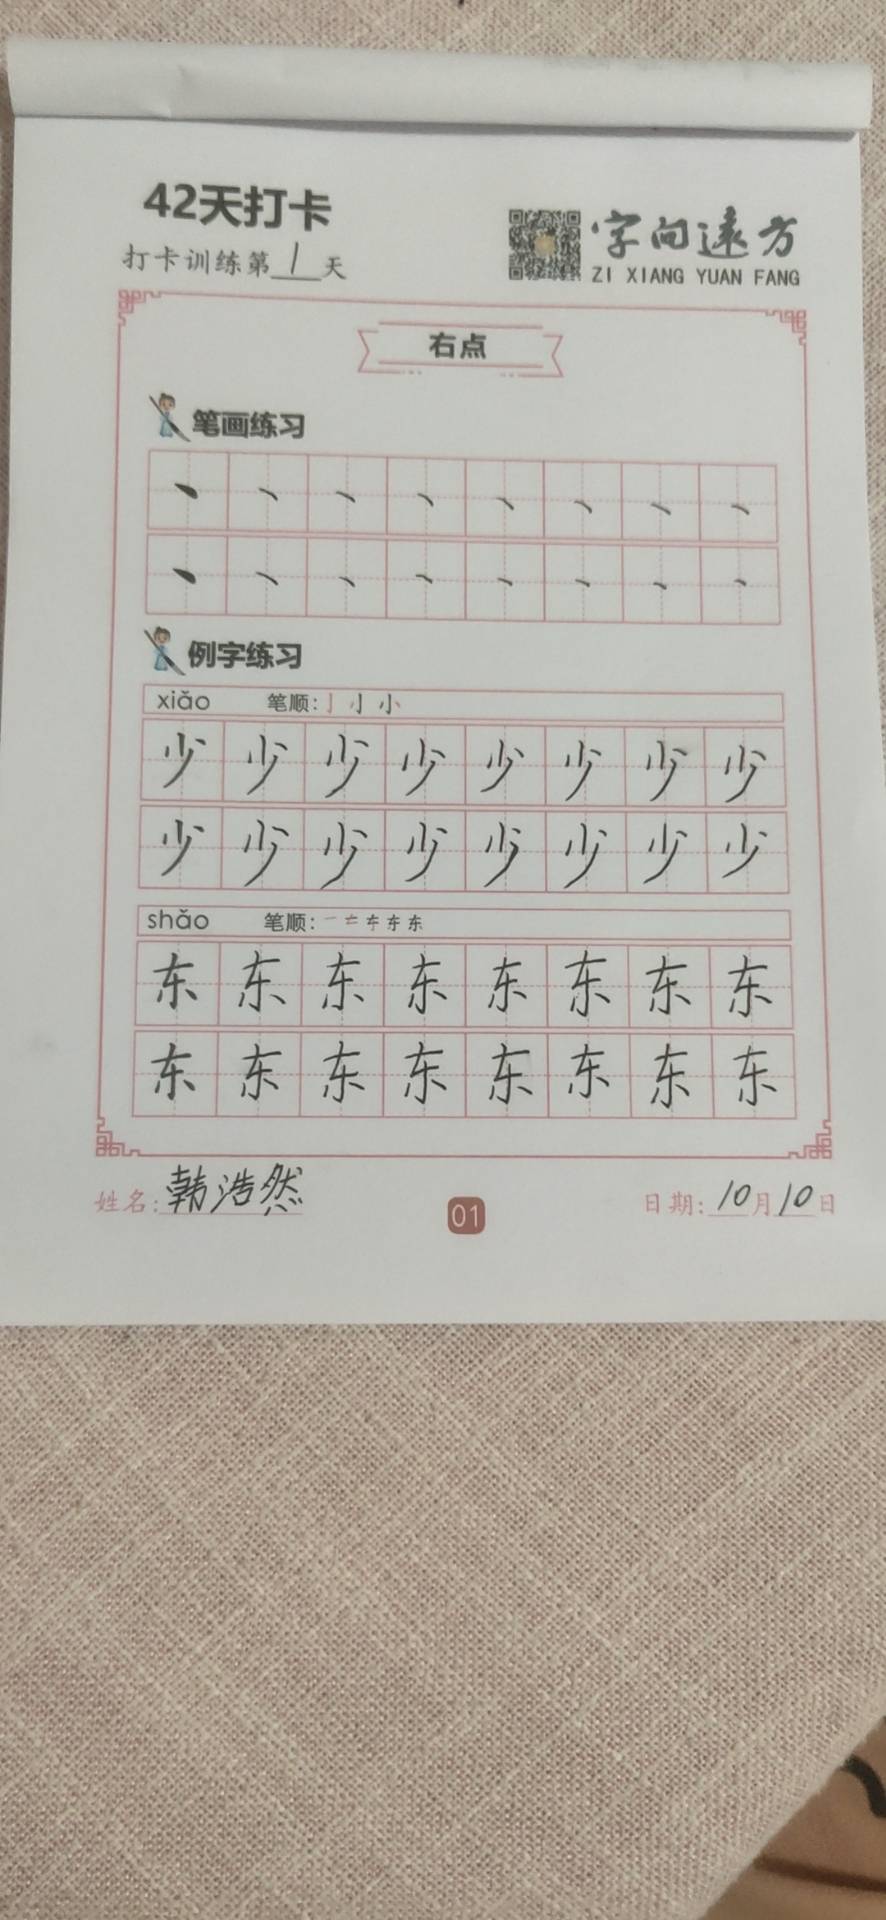 42天打卡
打卡训练第1天
字向遠方
ZI XIANG YUAN FANG
右点
笔画练习
丶 丶 丶 丶 丶 丶 丶 丶
丶 丶 丶 丶 丶 丶 丶 丶
例字练习
xiǎo 笔顺: 亅 小 小
少 少 少 少 少 少 少 少
少 少 少 少 少 少 少 少
shǎo 笔顺: 一 东 东
东 东 东 东 东 东 东 东
东 东 东 东 东 东 东 东
姓名: 韩浩然
01
日期: 10月10日